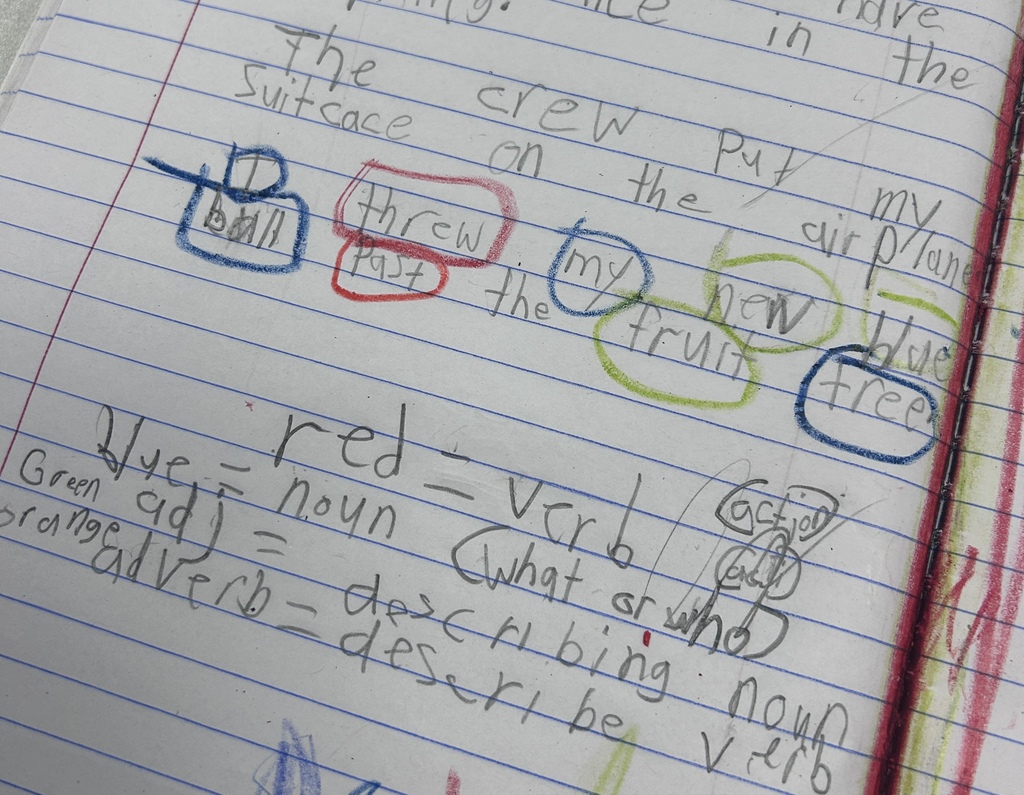 have
in the
The crew put my
suitcace on the airplane
I threw my new blue
ball past the fruit tree
red = verb (action)
blue = noun (what or who)
Green adj = describing noun
orange adverb = describe verb